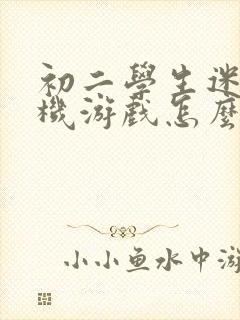 初二學生迷
機游戲怎麼
小小鱼水中游